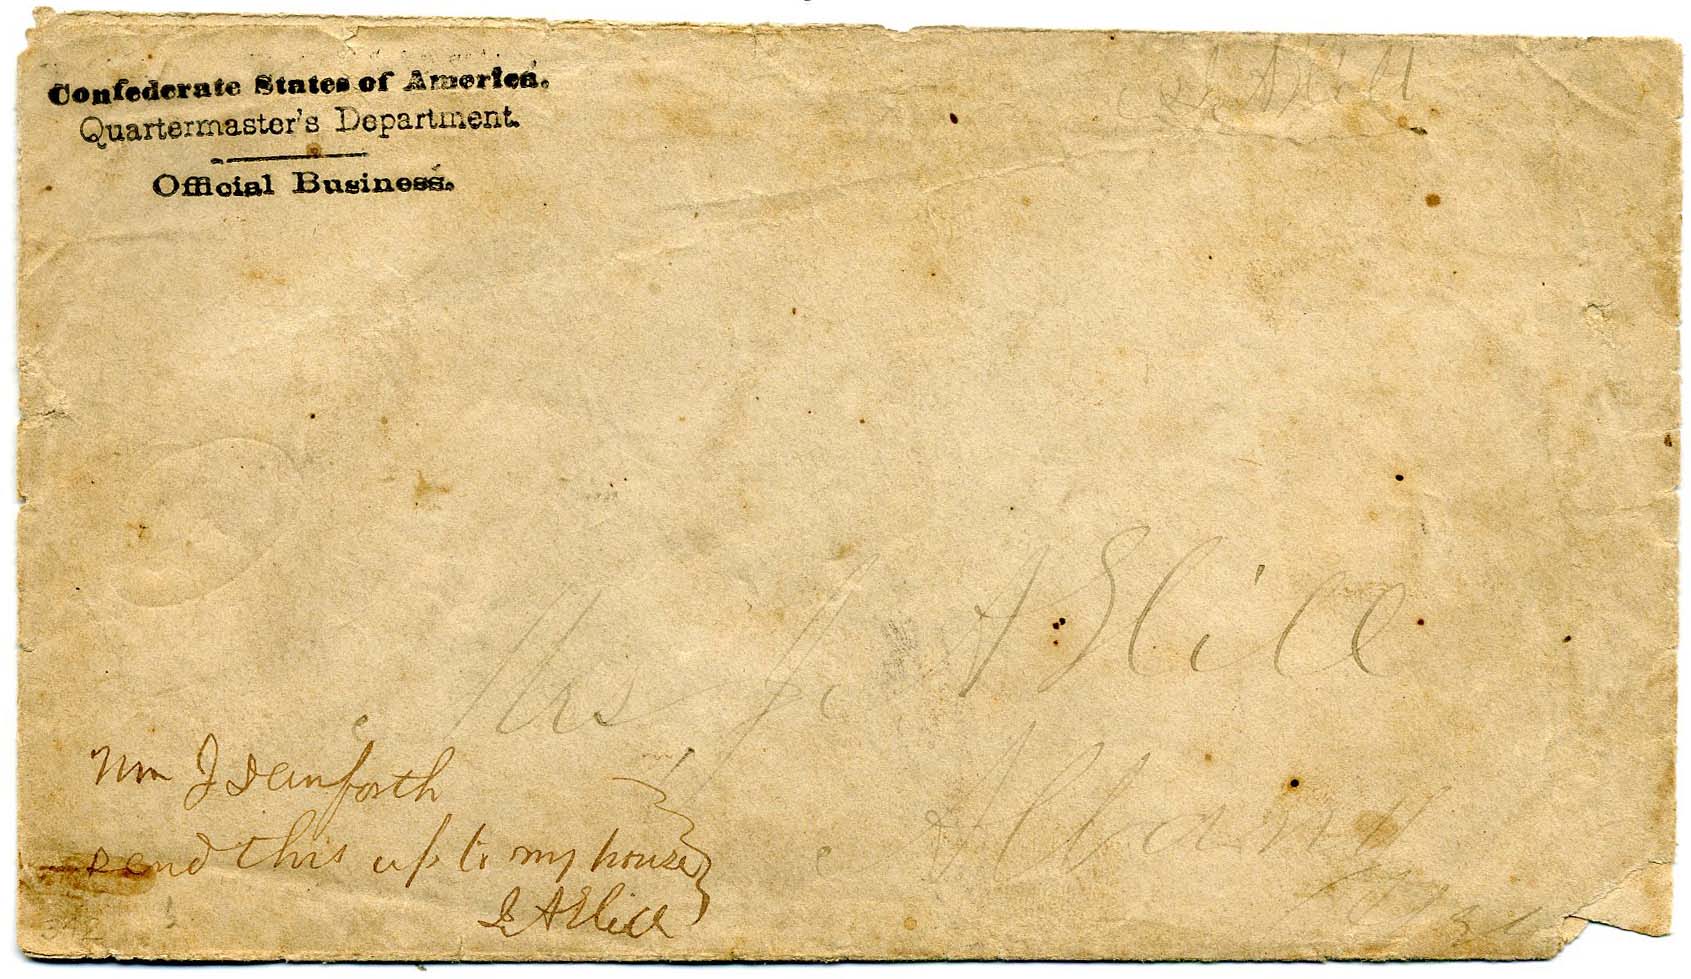 Confederate States of America.
Quartermaster's Department.
Official Business.
Mrs J. A Hill
Albany
Wm J Danforth
send this up to my house
J A Hill